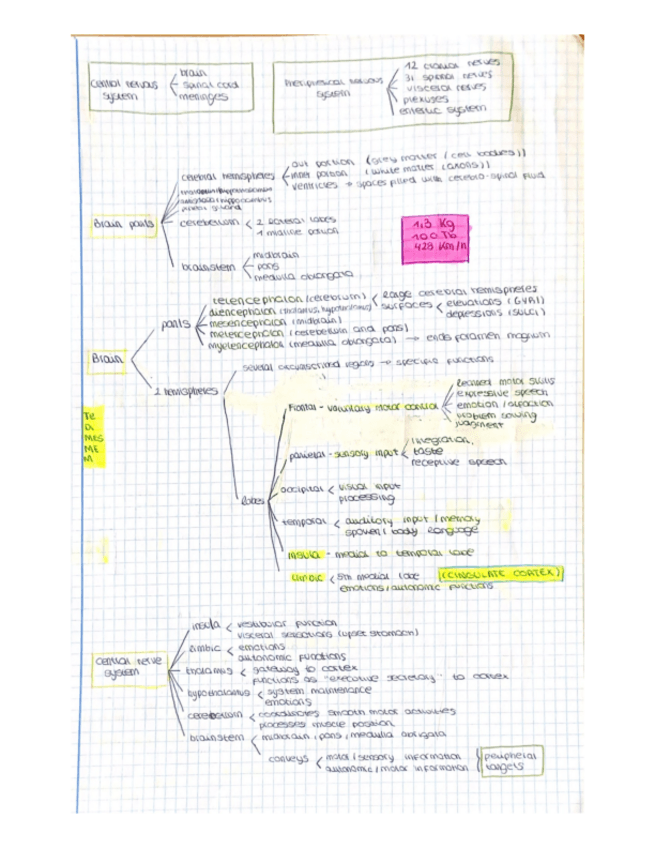 central nervous system
brain
spinal cord
meninges
Peripherical nervous system
12 cranial nerves
31 spinal nerves
visceral nerves
plexuses
enteric system
Brain parts
cerebral hemispheres
out portion (grey matter / cell bodies))
inner portion (white matter (axons))
ventricles → spaces filled with cerebro-spinal fluid
cerebellum
2 lateral lobes
1 midline portion
brainstem
midbrain
pons
medulla oblongata
1,3 Kg
100 Tb
428 Km/h
Brain
parts
telencephalon (cerebrum)
large cerebral hemispheres
surfaces
elevations (GYRI)
depressions (SULCI)
diencephalon (thalamus, hypothalamus)
mesencephalon (midbrain)
metencephalon (cerebellum and pons)
myelencephalon (medulla oblongata) → ends foramen magnum
2 hemispheres
several circumscribed regions → specific functions
TE
DI
MES
MET
M
lobes
Frontal - voluntary motor control
learned motor skills
expressive speech
emotion / olfaction
problem solving
judgment
parietal - sensory input
integration,
taste
receptive speech
occipital
visual input
processing
temporal
auditory input / memory
spoken / body language
insula - medial to temporal lobe
limbic
5th medial lobe
(CINGULATE CORTEX)
emotions / autonomic functions
central nerve system
insula
vestibular function
visceral sensations (upset stomach)
limbic
emotions
autonomic functions
thalamus
gateway to cortex
functions as "executive secretary" to cortex
hypothalamus
system maintenance
emotions
cerebellum
coordinates smooth motor activities
processes muscle position
brainstem
midbrain, pons, medulla oblongata
conveys
motor / sensory information
autonomic / motor information
peripheral targets